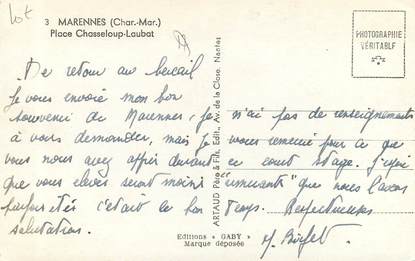 lot
3 MARENNES (Char.-Mar.)
Place Chasseloup-Laubat
PHOTOGRAPHIE
VÉRITABLE
De retour au bercail
Je vous envoie mon bon
souvenir de Marennes, je n'ai pas de renseignements
à vous demander, mais je vous remercie pour ce que
vous nous avez appris durant ce court stage. J'espère
que vos élèves seront moins "remuants" que nous l'avons
parfois étés c'était le bon temps. Respectueuses
salutations.
ARTAUD Père & Fils, Édit., Av. de la Close, Nantes
Editions « GABY »
Marque déposée